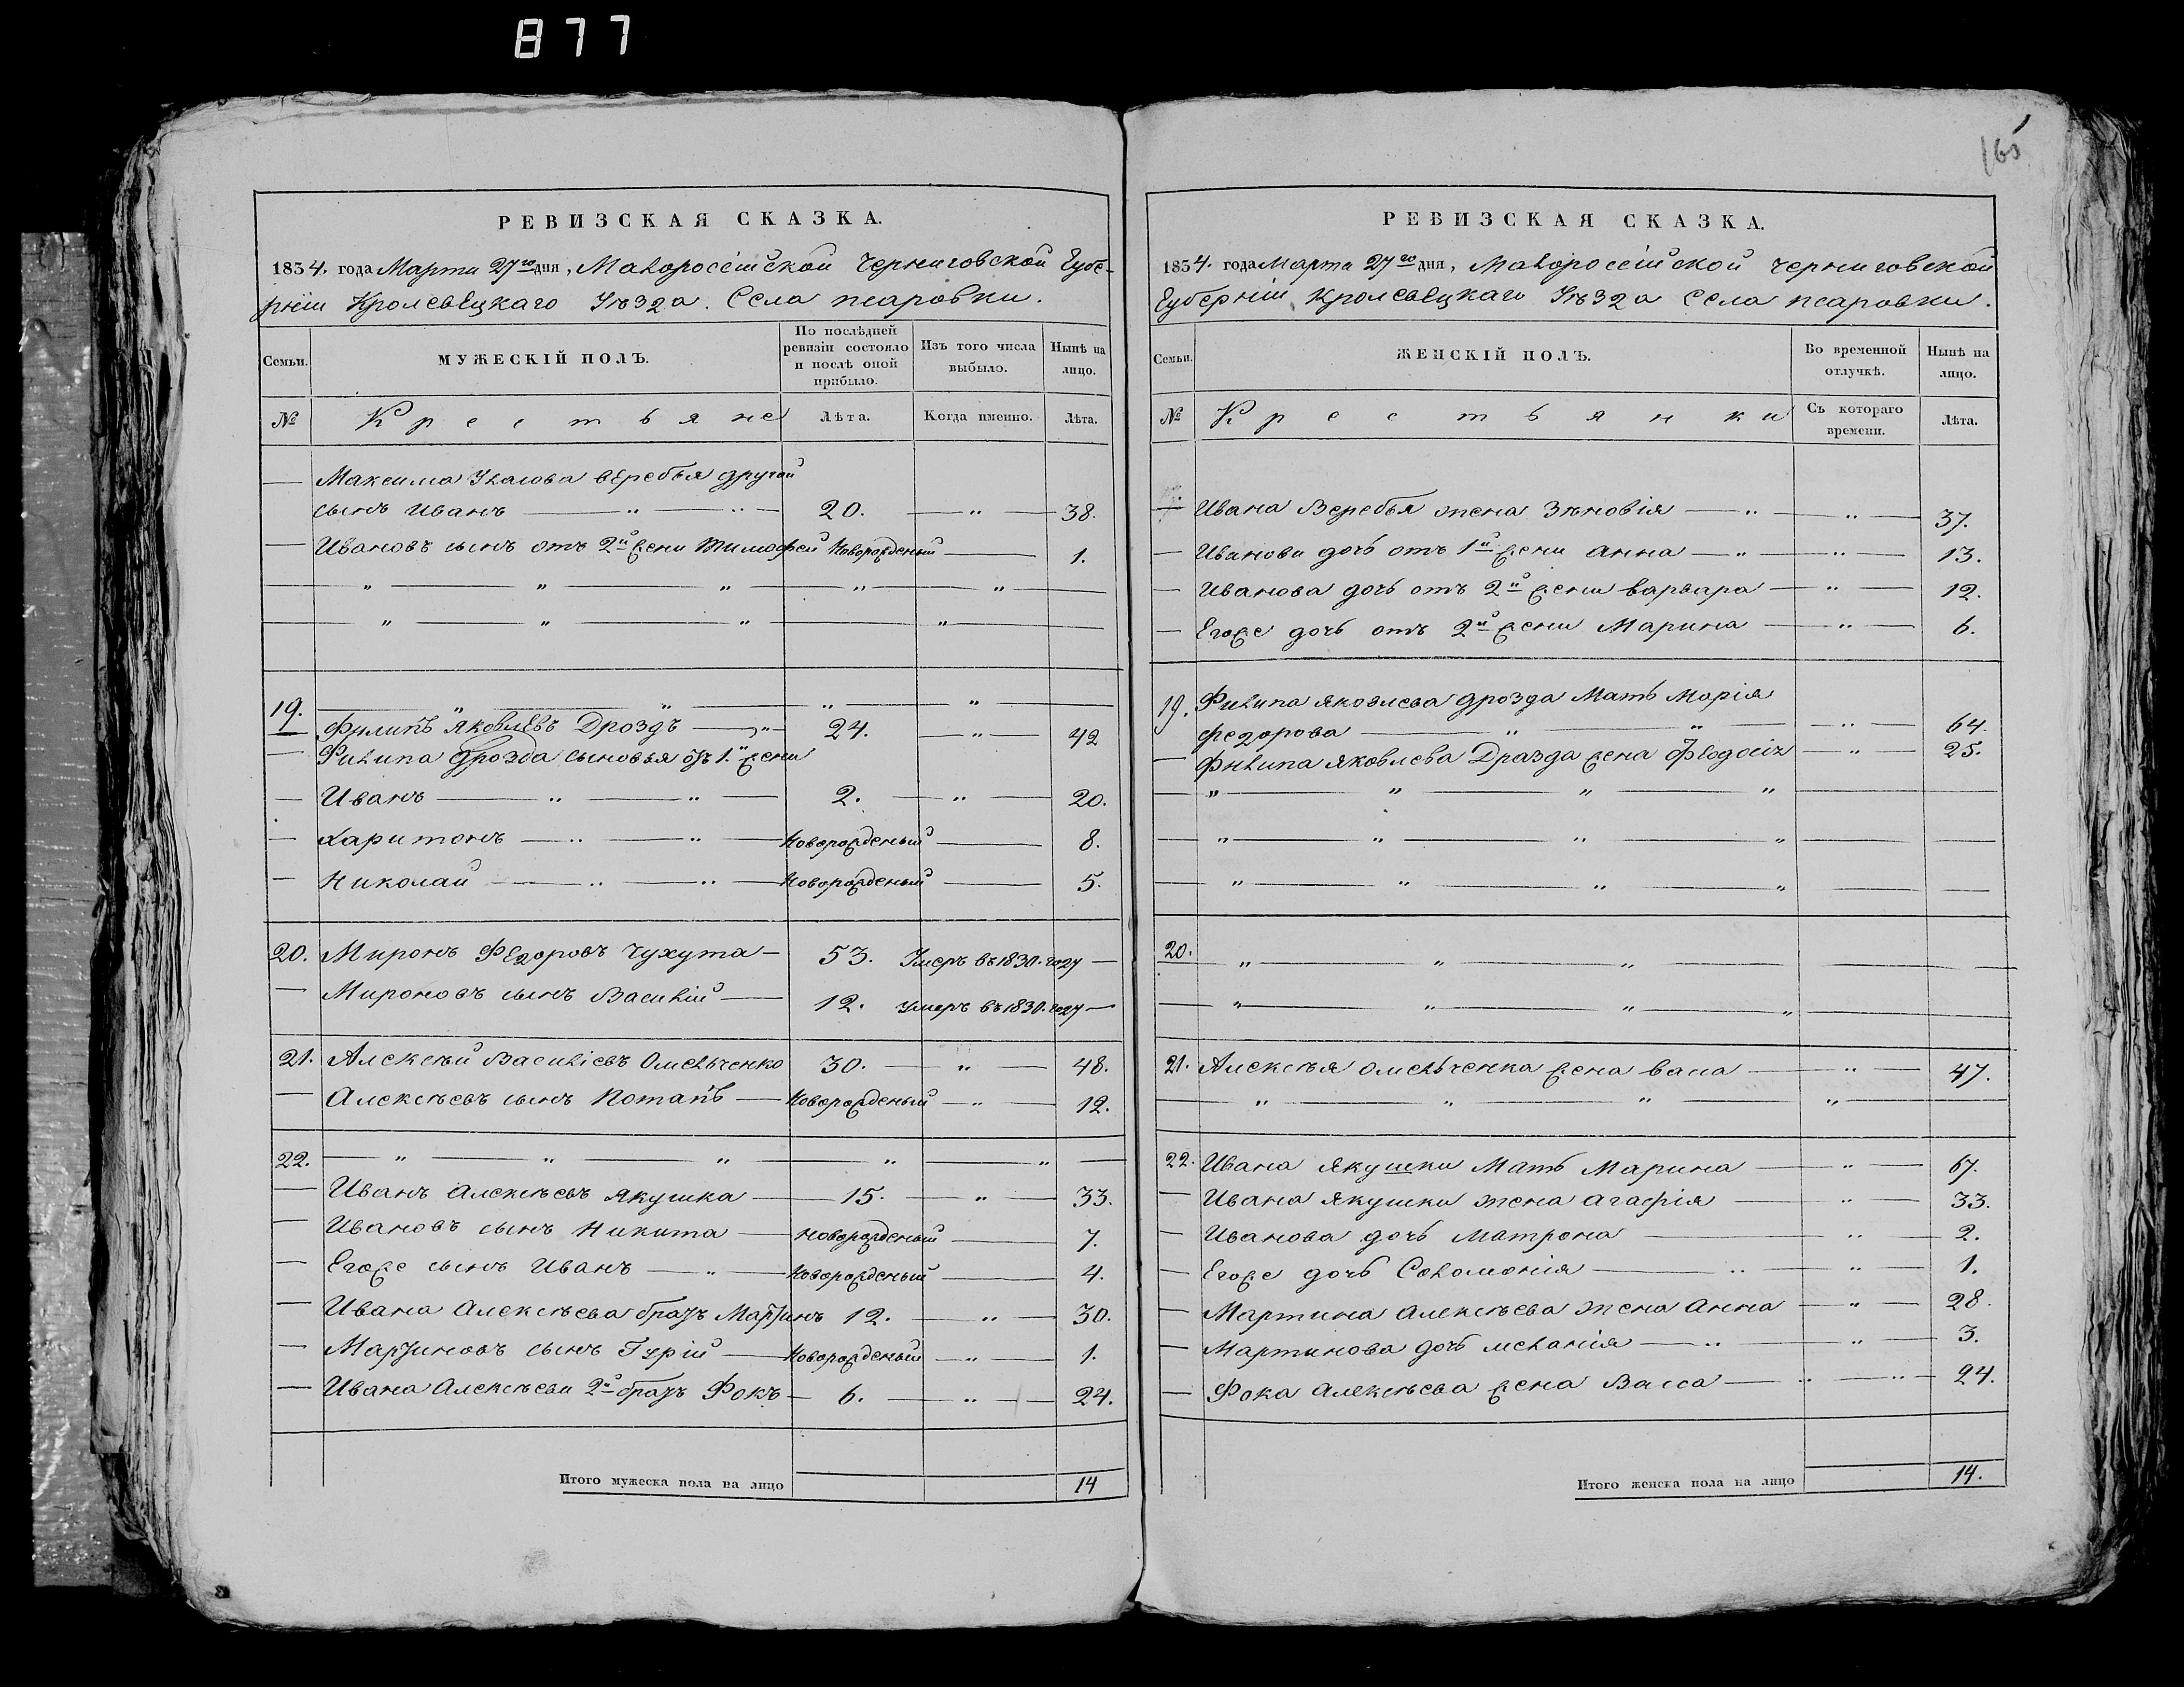 877
165
РЕВИЗСКАЯ СКАЗКА.
1834. года Марта 27го дня, Малороссійской Черниговской Губе-
рніи Кролевецкаго Уѣзда. Села псаровки.
Семьи. МУЖЕСКІЙ ПОЛЪ. По послѣдней ревизіи состояло и послѣ оной прибыло. Изъ того числа выбыло. Нынѣ на лицо.
№ Крестьяне Лѣта. Когда именно. Лѣта.
— Максима веребья другой
сынъ Иванъ — „ — „ — 20. — „ — 38.
— Ивановъ сынъ отъ 2й жени Тимофей Новорожденый — 1.
— „ — „ — „ — „ — „ —
— „ — „ — „ — „ —
19. — „ — „ — „ — „ —
— Филипъ Яковлевъ Дроздъ — „ — 24. — „ — 42
— Филипа Дрозда сыновья отъ 1й жени
— Иванъ — „ — „ — 2. — „ — 20.
— Харитонъ — „ — „ — Новорожденый — 8.
— Николай — „ — „ — Новорожденый — 5.
20. Миронъ Федоровъ Чухута — 53. Умеръ въ 1830. году —
— Мироновъ сынъ Василій — 12. Умеръ въ 1830. году —
21. Алексѣй Василіевъ Омельченко 30. — „ — 48.
— Алексѣевъ сынъ Потапъ — Новорожденый — „ — 12.
22. — „ — „ — „ — „ — „ —
— Иванъ Алексѣевъ Якушка — 15. — „ — 33.
— Ивановъ сынъ Никита — новорожденый — 7.
— Егоже сынъ Иванъ — „ — Новорожденый — 4.
— Ивана Алексѣева братъ Мартинъ 12. — „ — 30.
— Мартиновъ сынъ Гурій — Новорожденый — „ — 1.
— Ивана Алексѣева 2й братъ Фокъ — 6. — „ — 24.
Итого мужеска пола на лицо 14
РЕВИЗСКАЯ СКАЗКА.
1834. года Марта 27го дня, Малороссійской Черниговской
Губерніи Кролевецкаго Уѣзда Села псаровки.
Семьи. ЖЕНСКІЙ ПОЛЪ. Во временной отлучкѣ. Нынѣ на лицо.
№ Крестьянки Съ котораго времени. Лѣта.
— Ивана Веребья жена Зѣновія — „ — „ — 37.
— Иванова дочь отъ 1й жени Анна — „ — „ — 13.
— Иванова дочь отъ 2й жени Варвара — „ — 12.
— Егоже дочь отъ 2й жени Марина — „ — 6.
19. Филипа Яковлева Дрозда Мать Марія
Федорова — „ — „ — „ — 64.
— Филипа Яковлева Дразда жена Феодосія — „ — 25.
— „ — „ — „ — „ —
— „ — „ — „ — „ —
— „ — „ — „ — „ —
20. „ — „ — „ —
— „ — „ — „ — „ —
21. Алексѣя Омельченка жена васа — „ — 47.
— „ — „ — „ — „ —
22. Ивана Якушки Мать Марина — „ — 67.
— Ивана Якушки жена Агафія — „ — 33.
— Иванова дочь Матрона — „ — 2.
— Егоже дочь Соломонія — „ — „ — 1.
— Мартина Алексѣева жена Анна — „ — 28.
— Мартинова дочь меланія — „ — „ — 3.
— Фока Алексѣева жена Васса — „ — „ — 24.
Итого женска пола на лицо 14.